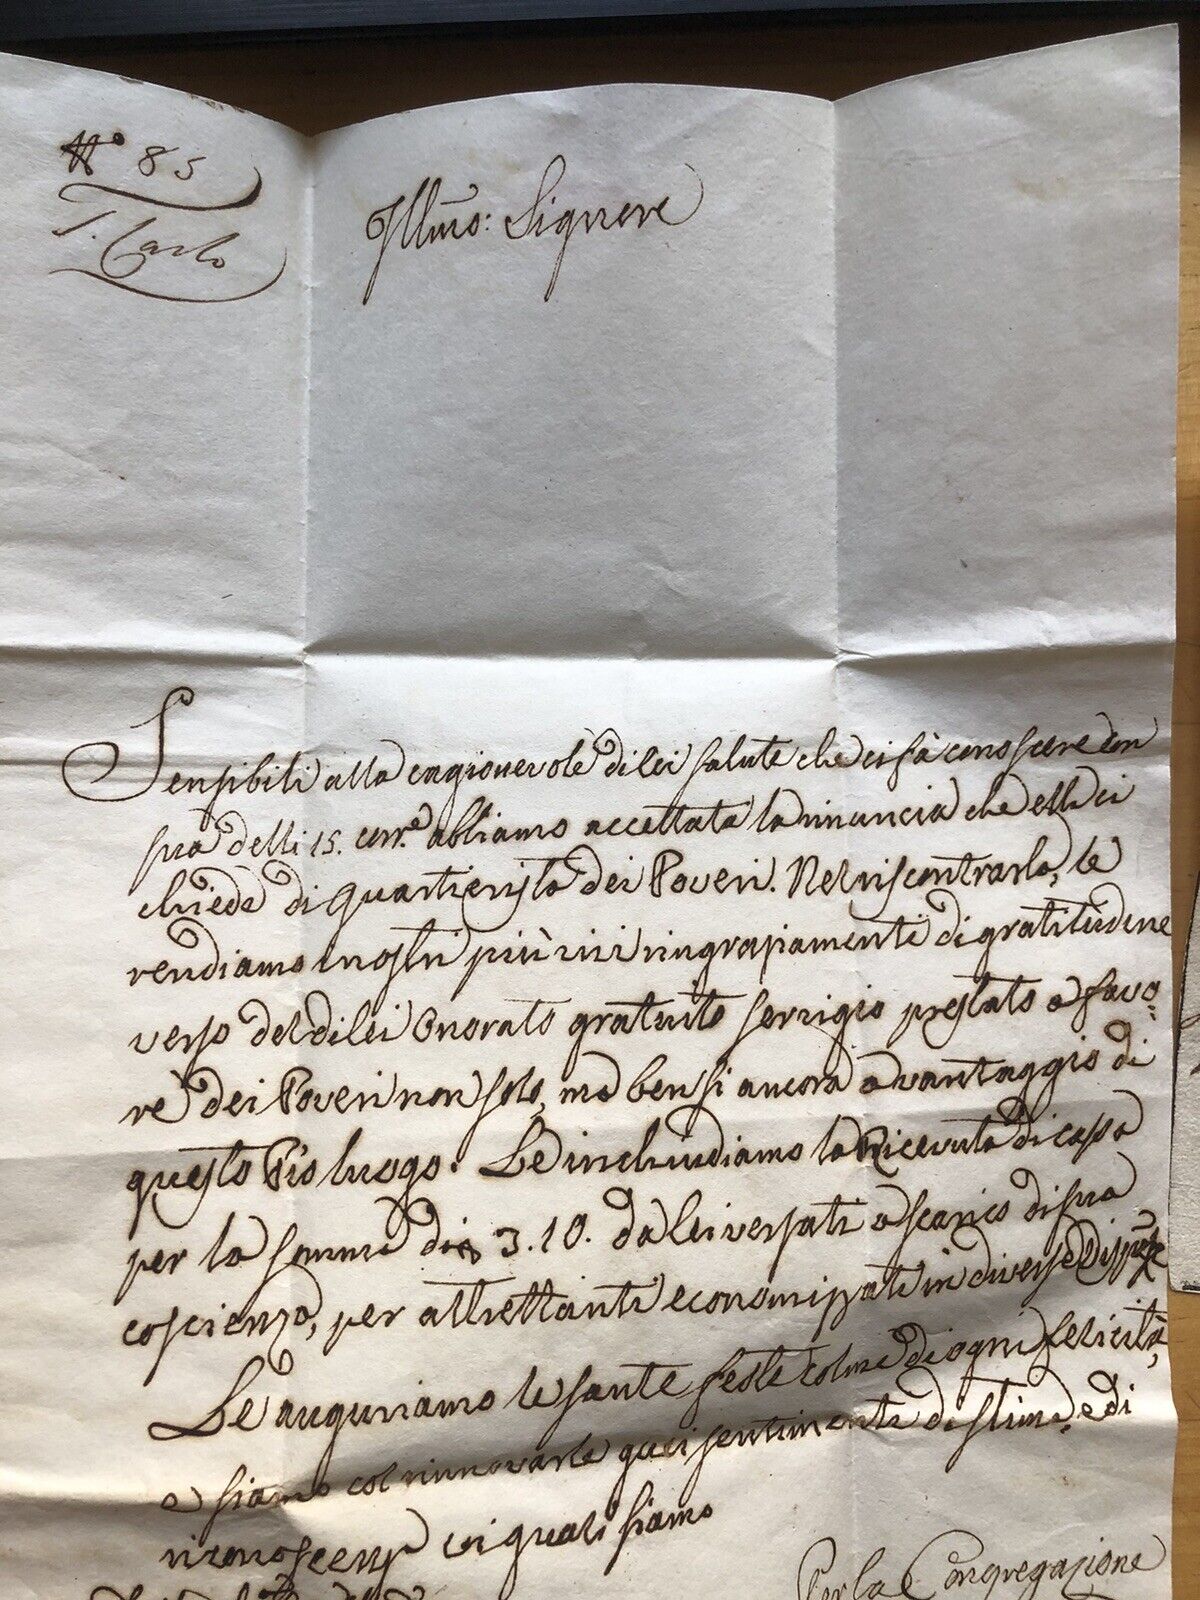 N.° 85
S. Carlo
Illmo: Signore
Sensibili alla cagionevole di lei salute che ci fà conoscere con
sua delli 15. corr.e abbiamo accettata la rinuncia che ella ci
chiede di quartierista dei Poveri. Nel riscontrarla, le
rendiamo i nostri più vivi ringraziamenti di gratitudine
verso del di lei onorato gratuito servigio prestato a favo=
re dei Poveri non solo, ma bensi ancora a vantaggio di
questo Pio luogo. Le inchiudiamo la Ricevuta di cassa
per la somma di 3.10. da lei versati a scarico di sua
coscienza, per altrettanti economizzati in diverse
Le auguriamo le sante feste colme di ogni felicità,
e siamo col rinnovarle quei sentimenti di stima, e di
riconoscenza coi quali siamo
Per la Congregazione